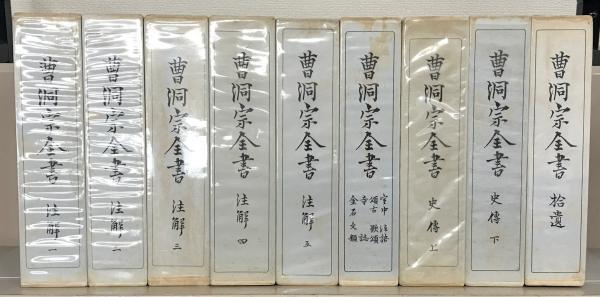 曹洞宗全書 注解 一
曹洞宗全書 注解 二
曹洞宗全書 注解 三
曹洞宗全書 注解 四
曹洞宗全書 注解 五
曹洞宗全書
室中 法語
頌古 歌頌
寺誌
金石文類
曹洞宗全書 史傳 上
曹洞宗全書 史傳 下
曹洞宗全書 拾遺